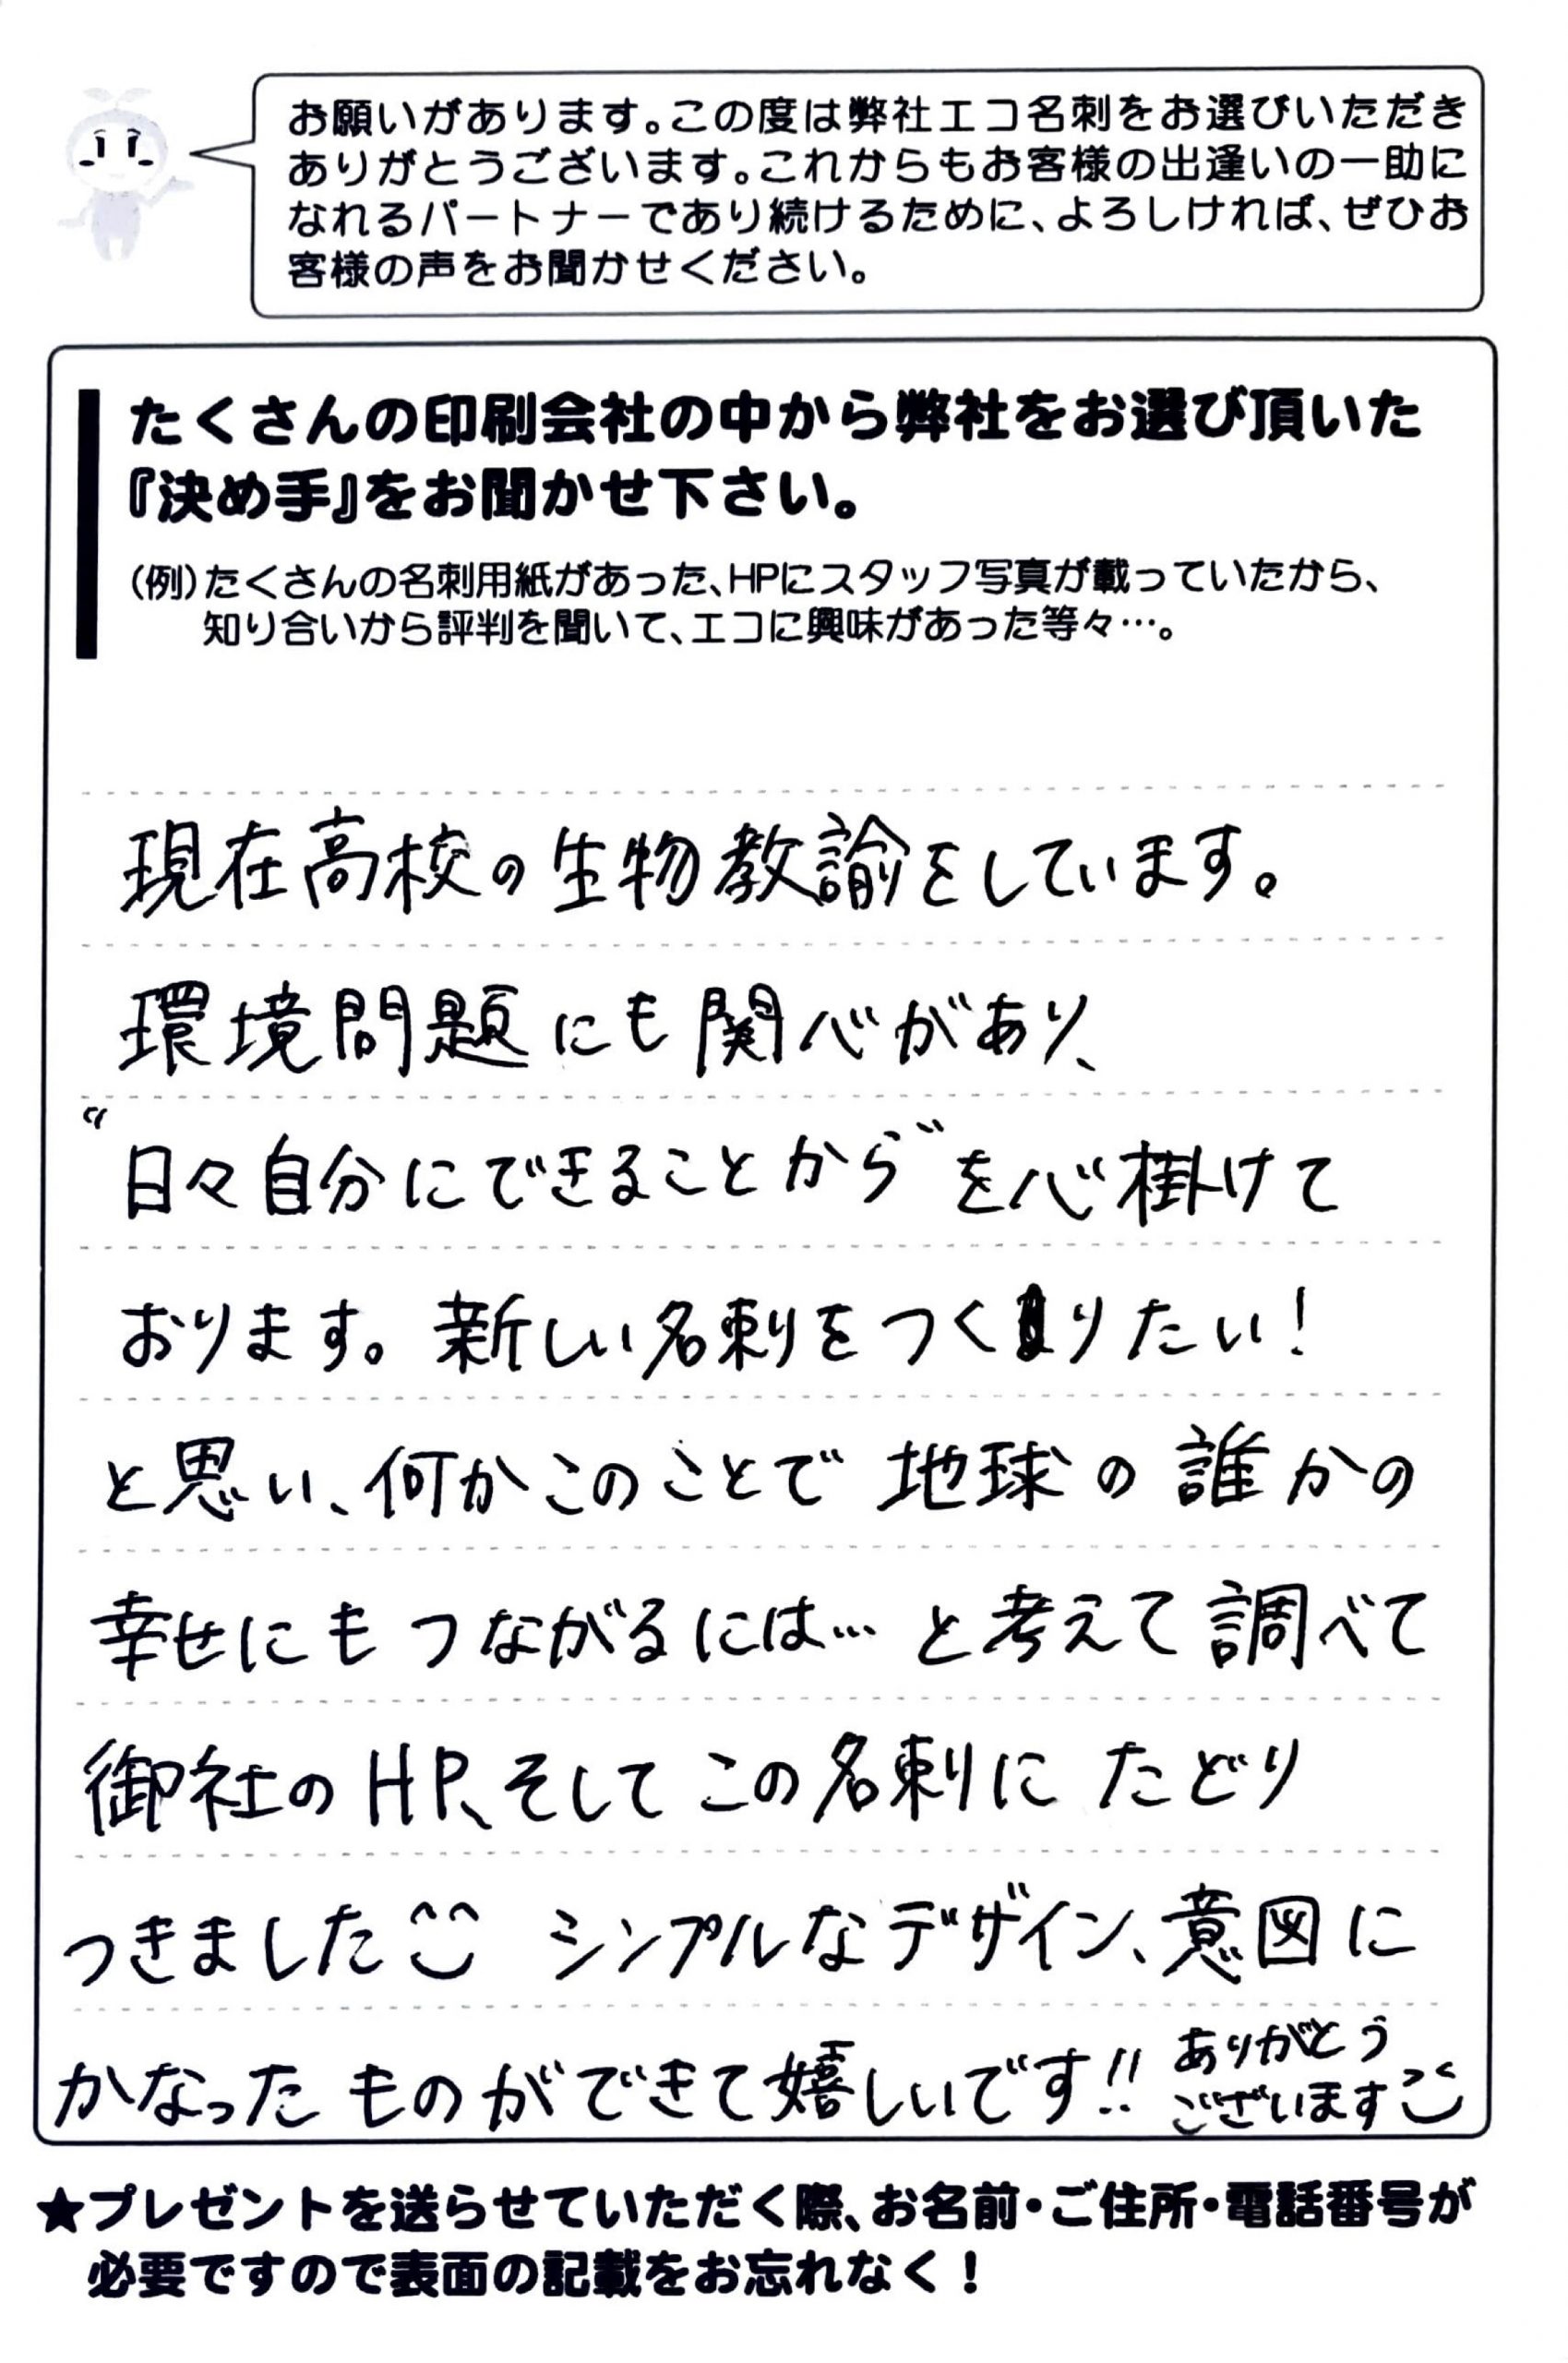 お願いがあります。この度は弊社エコ名刺をお選びいただき
ありがとうございます。これからもお客様の出逢いの一助に
なれるパートナーであり続けるために、よろしければ、ぜひお
客様の声をお聞かせください。
たくさんの印刷会社の中から弊社をお選び頂いた
『決め手』をお聞かせ下さい。
(例)たくさんの名刺用紙があった、HPにスタッフ写真が載っていたから、
知り合いから評判を聞いて、エコに興味があった等々…。
現在高校の生物教諭をしています。
環境問題にも関心があり、
“日々自分にできることから”を心掛けて
おります。新しい名刺をつくりたい!
と思い、何かこのことで地球の誰かの
幸せにもつながるには…と考えて調べて
御社のHP、そしてこの名刺にたどり
つきました シンプルなデザイン、意図に
かなったものができて嬉しいです!! ありがとう
ございます
★プレゼントを送らせていただく際、お名前・ご住所・電話番号が
必要ですので表面の記載をお忘れなく!